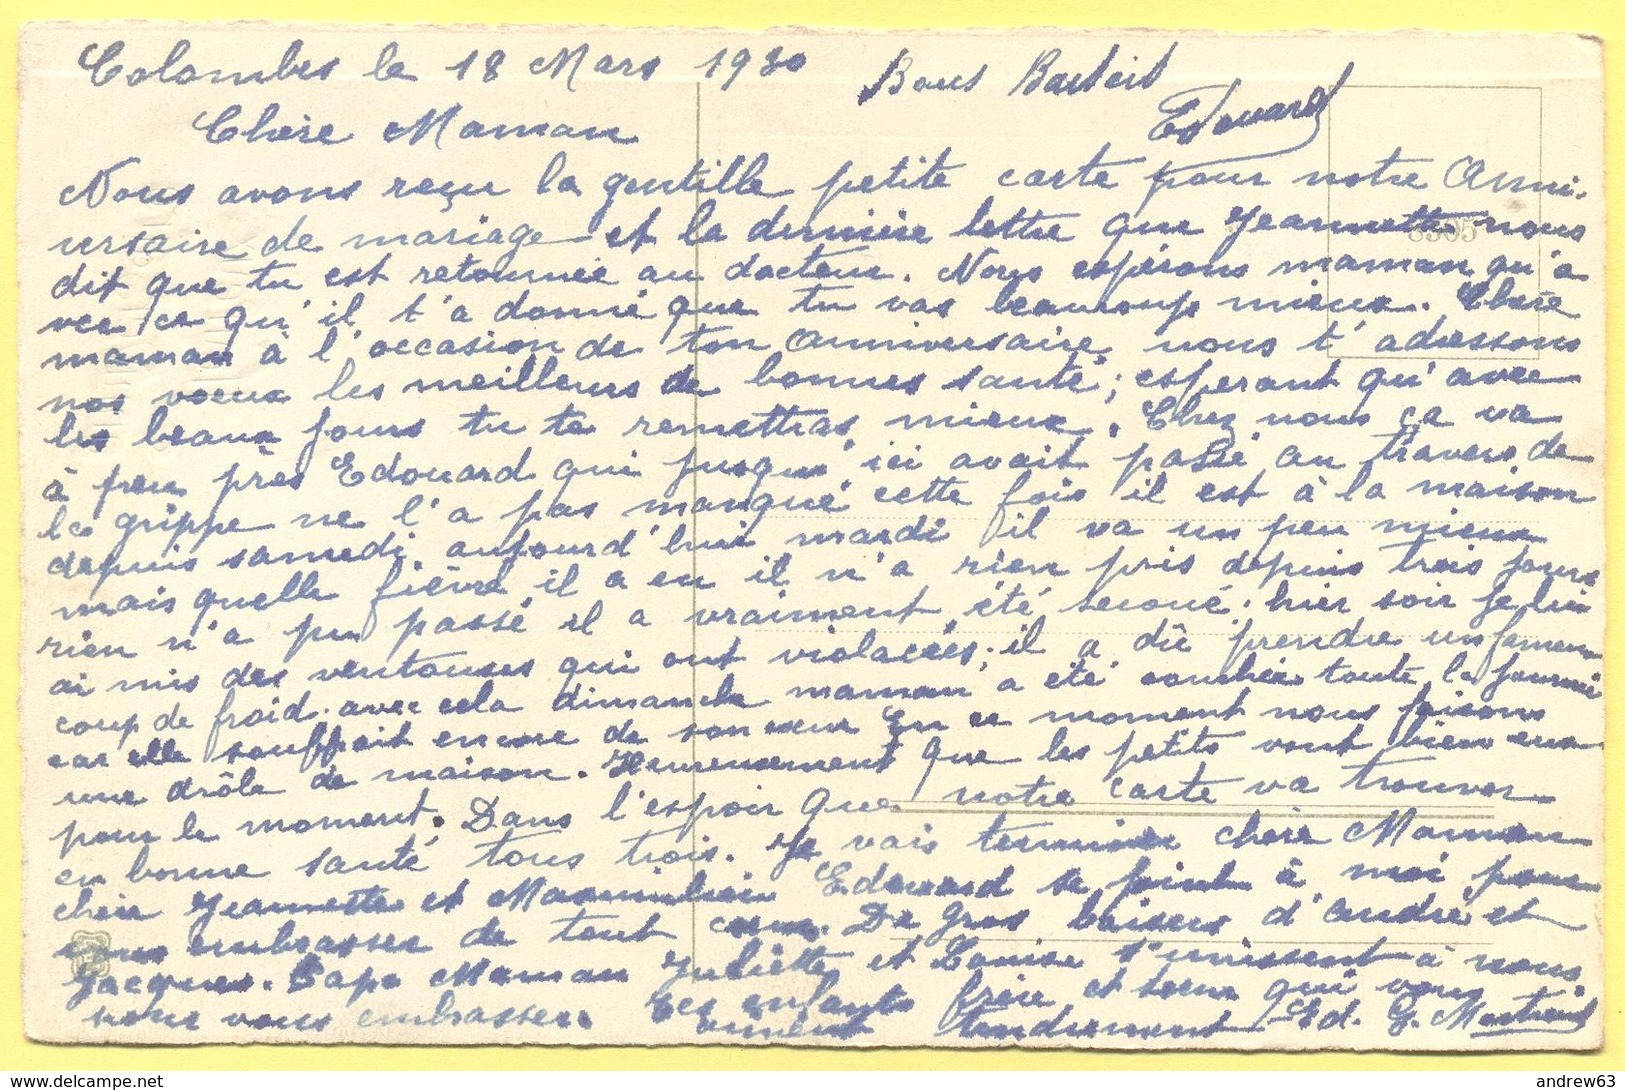 Colombes le 18 Mars 1930
Bons Baisers
Edouard
Chère Maman
Nous avons reçu la gentille petite carte pour notre Anni-
versaire de mariage et la dernière lettre que Jeannette nous
dit que tu est retournée au docteur. Nous espérons maman qu'a
vec ce qu'il t'a donné que tu vas beaucoup mieux. Chère
maman à l'occasion de ton anniversaire, nous t'adressons
nos voeux les meilleurs de bonnes santé; esperant qu'avec
les beaux jours tu te remettras mieux. Chez nous ça va
à peu près Edouard qui jusqu'ici avait passé au travers de
la grippe ne l'a pas manqué cette fois il est à la maison
depuis samedi aujourd'hui mardi il va un peu mieux
mais quelle fièvre il a eu il n'a rien pris depuis trois jours
rien n'a pu passé il a vraiment été secoué. hier soir je lui
ai mis des ventouses qui ont violacées; il a dû prendre un fameux
coup de froid. avec cela dimanche maman a été couchée toute la journée
car elle souffrait encore de son coeur En ce moment nous faisons
une drôle de maison. Heureusement que les petits vont bien
pour le moment. Dans l'espoir que notre carte va trouver
en bonne santé tous trois. Je vais terminer chère Maman
chère Jeannette et Maximilien Edouard se joint à moi pour
vous embrasser de tout coeur. De gros baisers d'André et
Jacques. Papa Maman Juliette et Louise s'unissent à nous
pour vous embrasser. Les enfants frère et soeur qui vous
aiment tendrement Ed. G.
8305
andrew63